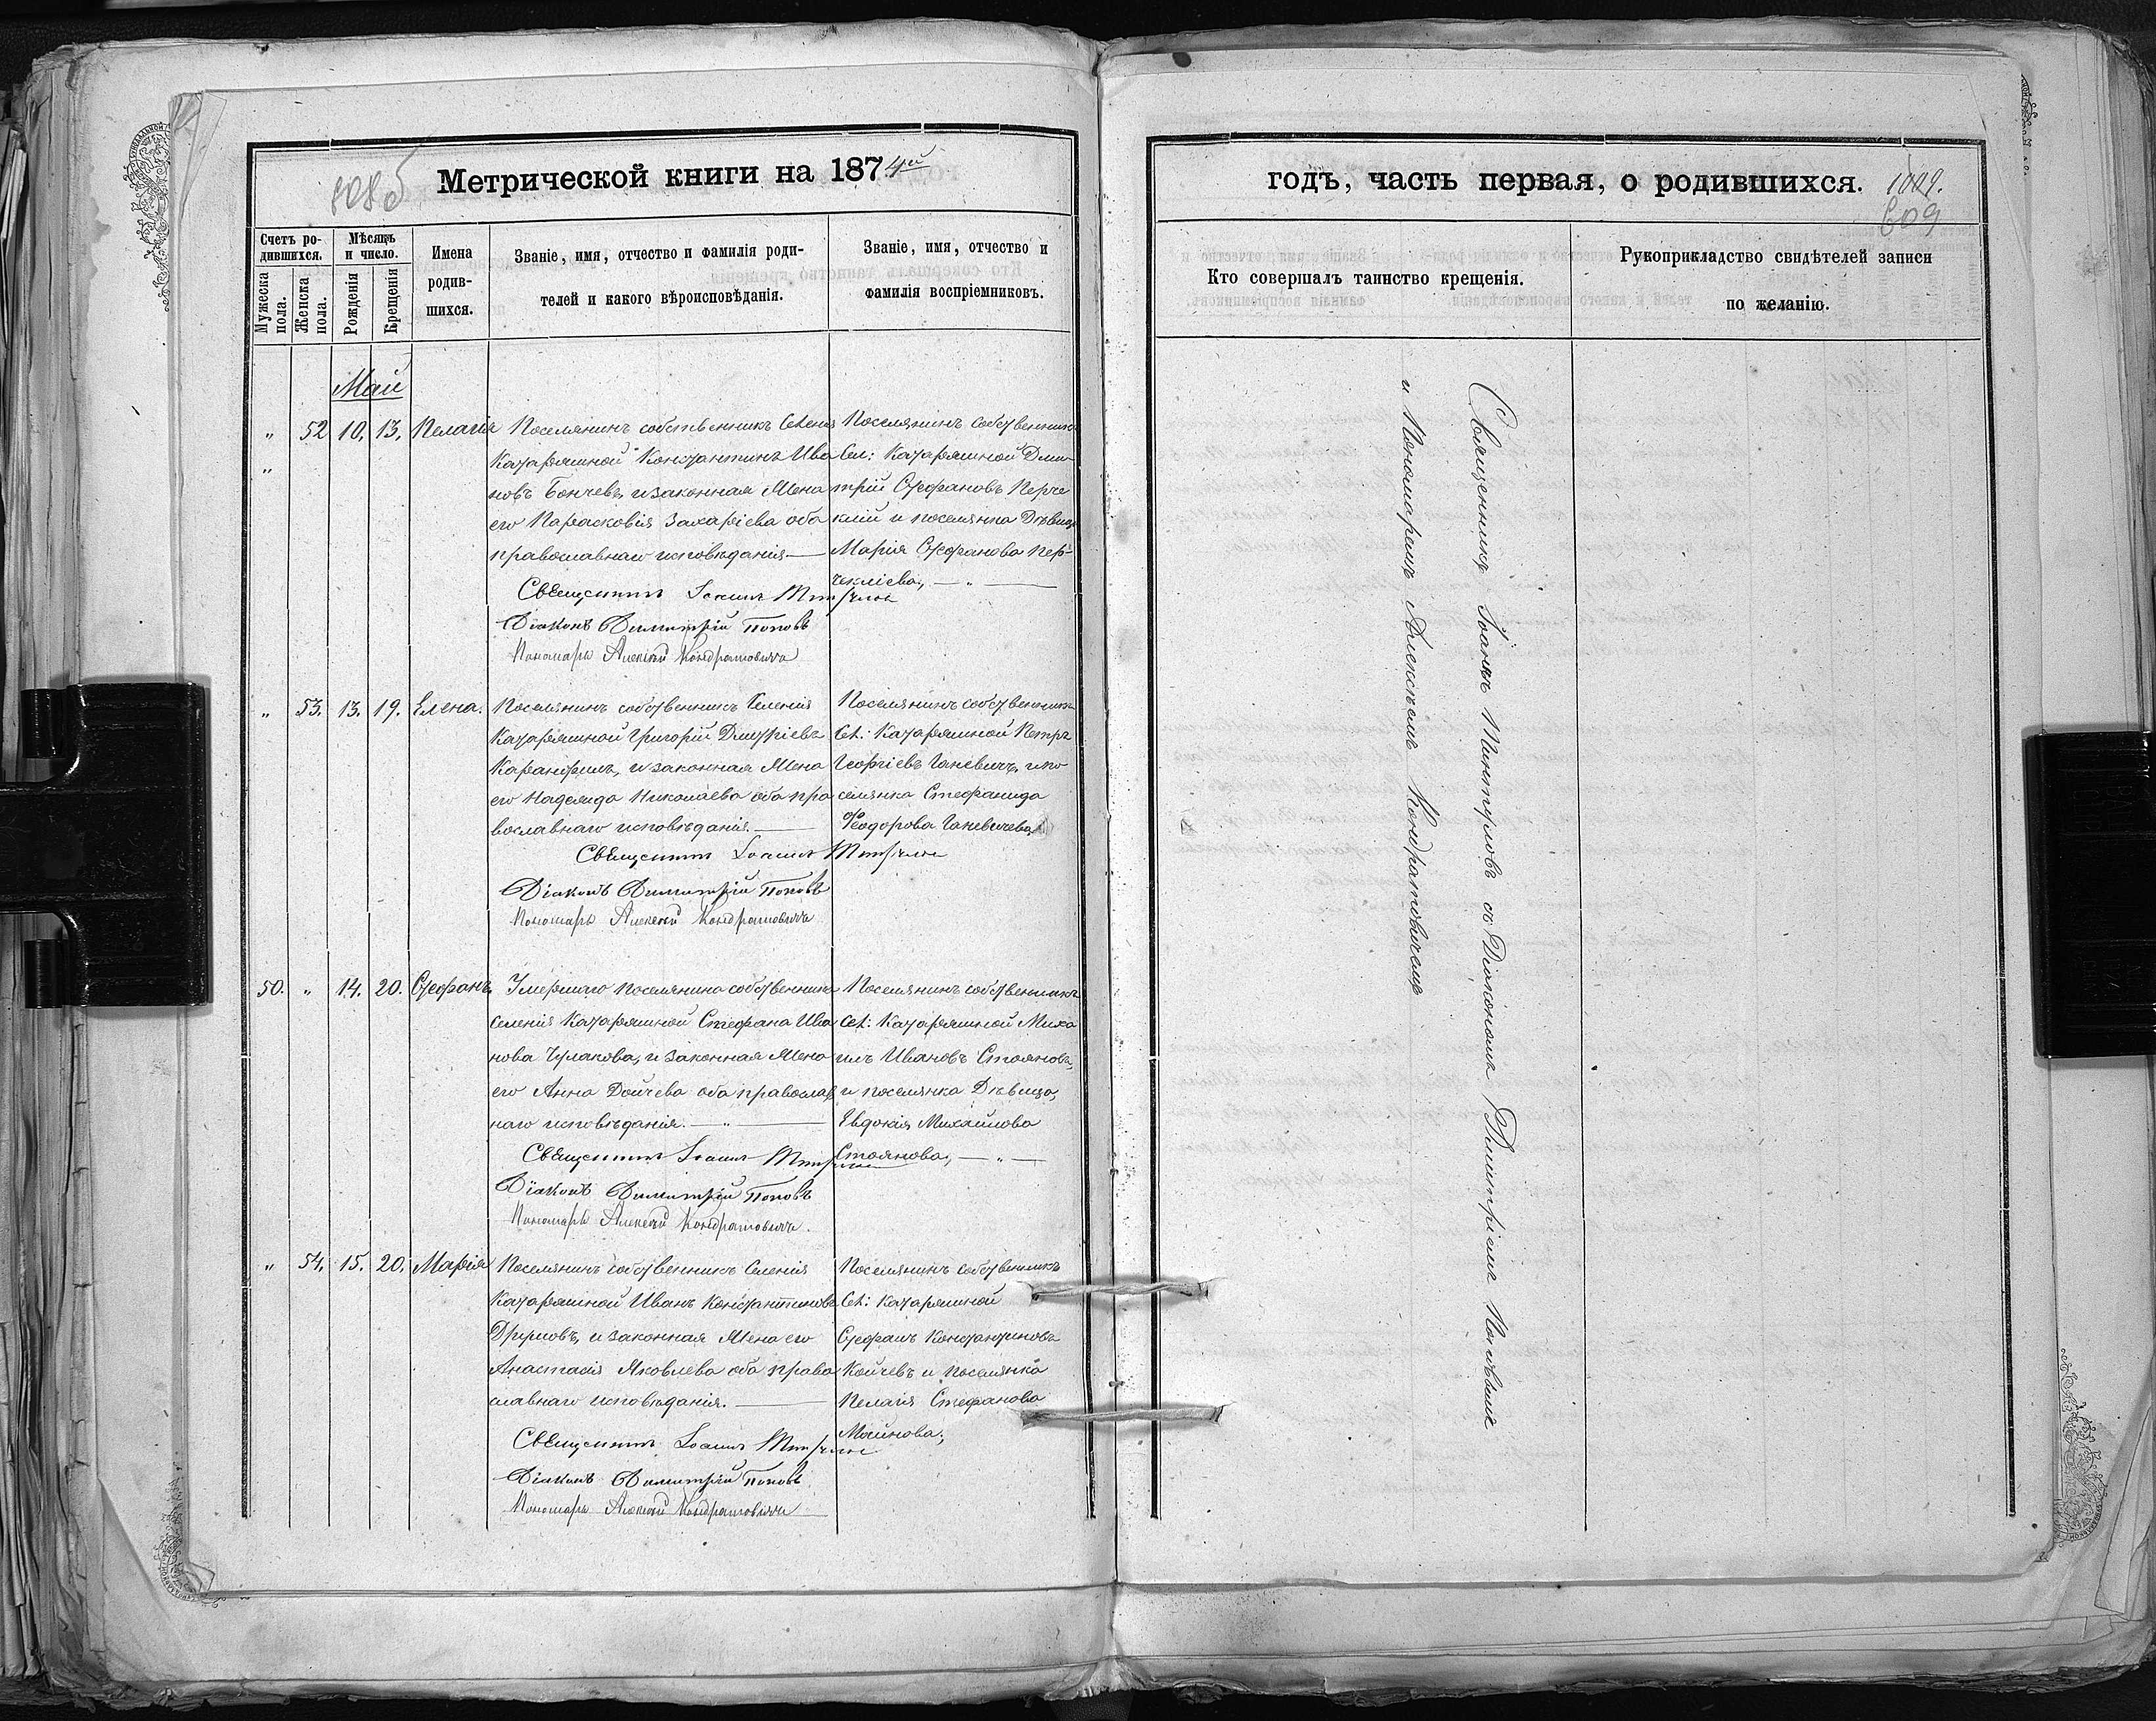 Метрической книги на 1874й
Счетъ ро-
дившихся.
Мужеска
пола.
Женска
пола.
Мѣсяцъ
и число.
Рожденія
Крещенія
Имена
родив-
шихся.
Званіе, имя, отчество и фамилія роди-
телей и какого вѣроисповѣданія.
Званіе, имя, отчество и
фамилія воспріемниковъ.
Май
" 52 10, 13, Пелагія
"
Поселянинъ собственникъ Селенія
Катаржиной Константинъ Ива
новъ Бончевъ, и законная Жена
его Парасковія Захаріева оба
православнаго исповѣданія —
Священникъ Іоаннъ
Діаконъ Димитрій Поповъ
Пономарь Алексѣй Кондратовичъ
Поселянинъ собственникъ
Сел: Катаржиной Дми-
трій Стефановъ Перче
клій и поселянка Дѣвица
Марія Стефанова Пер-
чекліева, — " —
" 53. 13. 19. Елена.
Поселянинъ собственникъ Селенія
Катаржиной Григорій Дмитріевъ
Каранфилъ, и законная Жена
его Надежда Николаева оба пра
вославнаго исповѣданія. —
Священникъ Іоаннъ
Діаконъ Димитрій Поповъ
Пономарь Алексѣй Кондратовичъ
Поселянинъ собственникъ
Сел: Катаржиной Петръ
Георгіевъ Ганевичъ, и по
селянка Стефанида
Феодорова Ганевичева,
50. " 14. 20. Стефанъ.
Умершаго поселянина собственника
селенія Катаржиной Стефана Ива
нова Чулакова, и законная Жена
его Анна Дойчева оба православ
наго исповѣданія. — " —
Священникъ Іоаннъ
Діаконъ Димитрій Поповъ
Пономарь Алексѣй Кондратовичъ.
Поселянинъ собственникъ
Сел: Катаржиной Миха
илъ Ивановъ Стояновъ,
и поселянка Дѣвица,
Евдокія Михайлова
Стоянова, — " —
" 54. 15. 20. Марія
Поселянинъ собственникъ Селенія
Катаржиной Иванъ Константиновъ
Друмовъ, и законная Жена его
Анастасія Яковлева оба право
славнаго исповѣданія. —
Священникъ Іоаннъ
Діаконъ Димитрій Поповъ
Пономарь Алексѣй Кондратовичъ
Поселянинъ собственникъ
Сел: Катаржиной
Стефанъ Константиновъ
Койчевъ и поселянка
Пелагія Стефанова
Мойнова,
годъ, часть первая, о родившихся.
1009.
609
Кто совершалъ таинство крещенія.
Рукоприкладство свидѣтелей записи
по желанію.
Священникъ Іоаннъ съ Діакономъ Димитріемъ Поповымъ
и Пономаремъ Алексѣемъ Кондратовичемъ